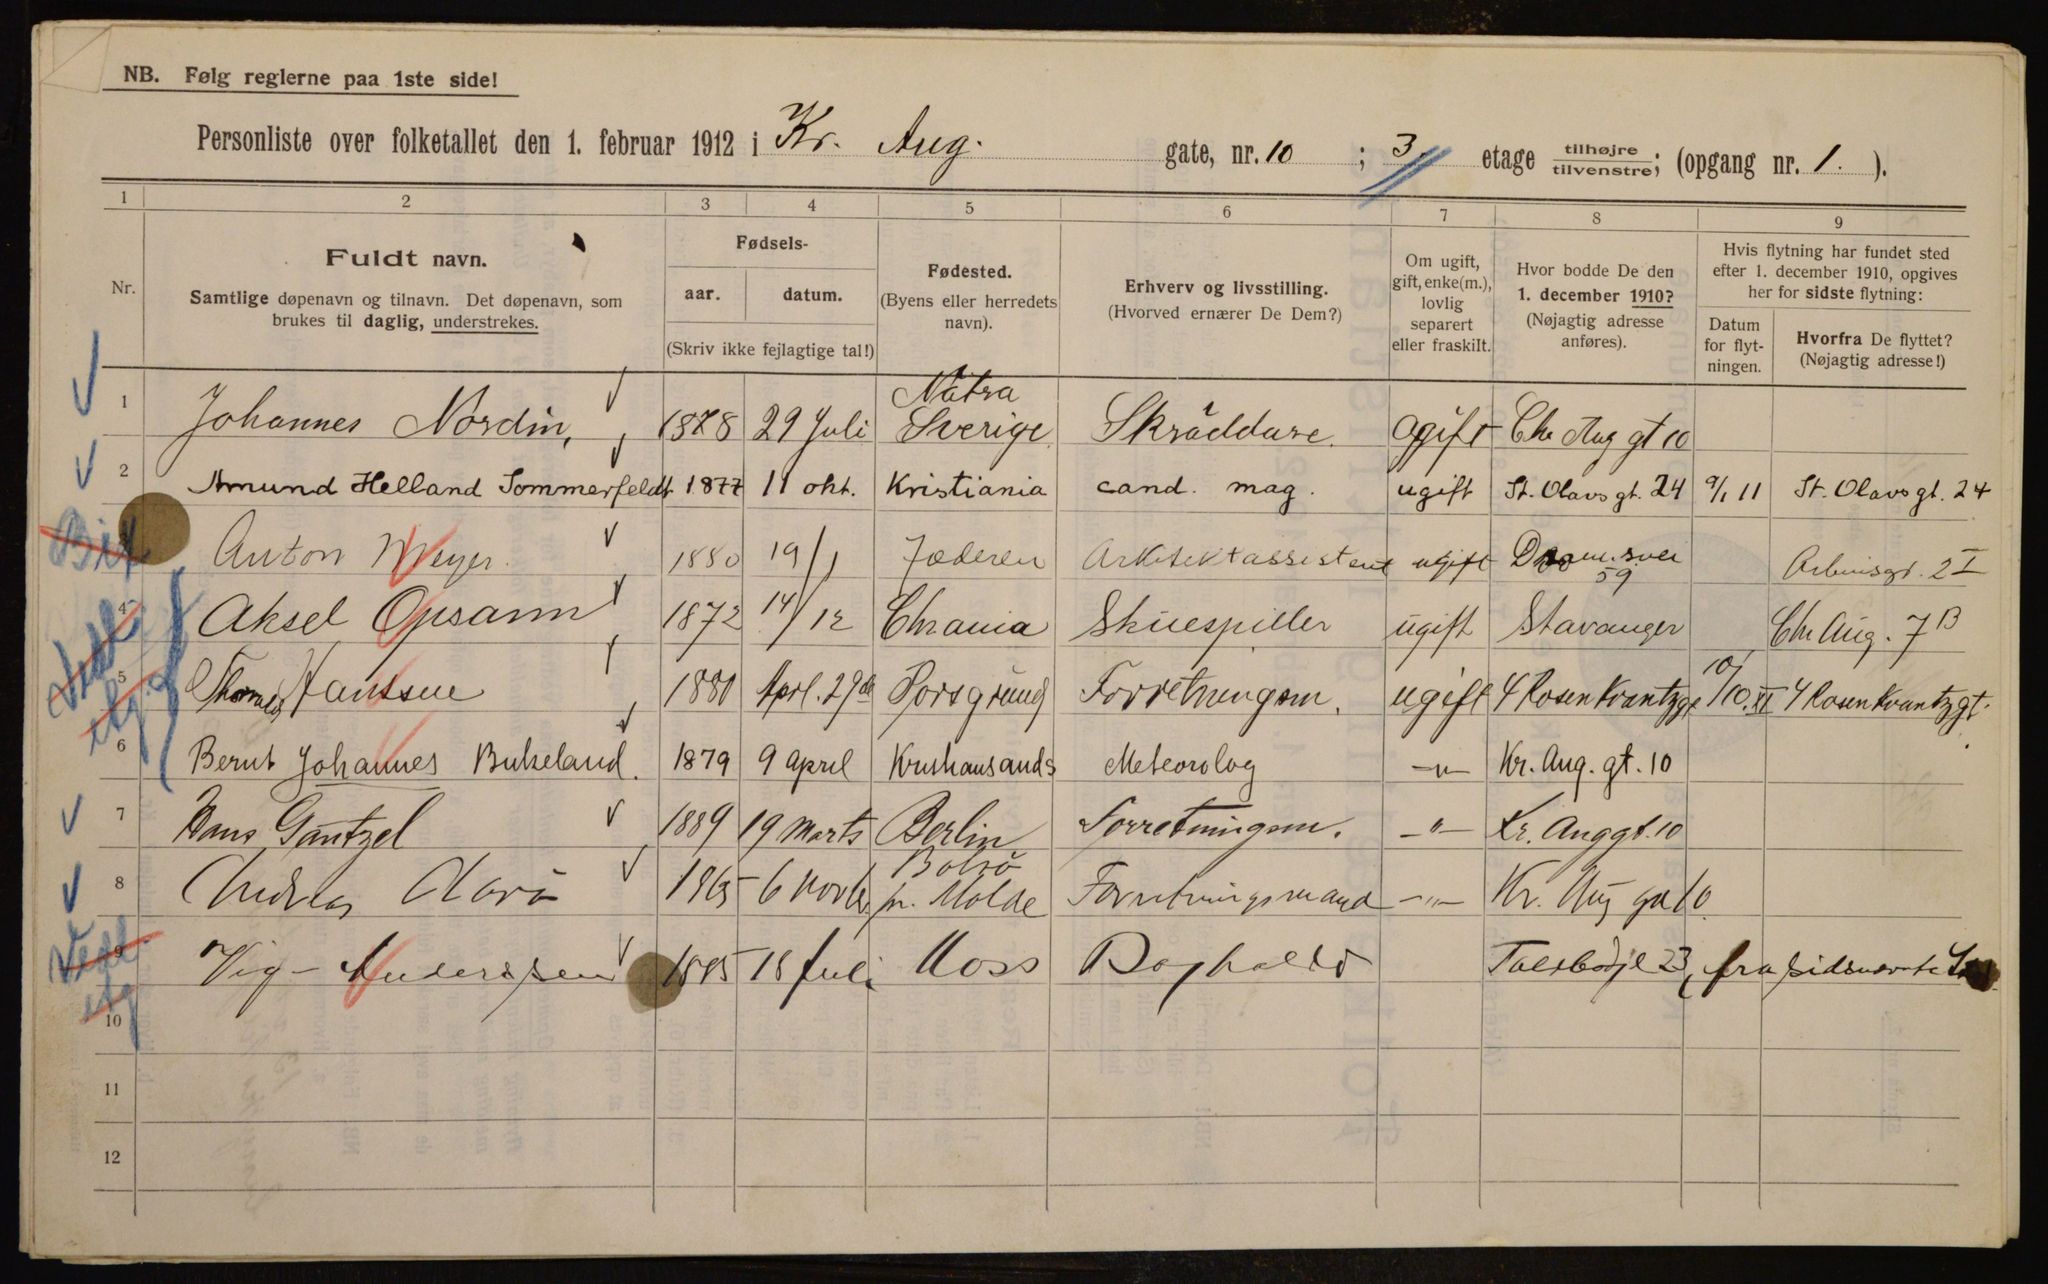 NB. Følg reglerne paa 1ste side!
Personliste over folketallet den 1. februar 1912 i Kr. Aug. gate, nr. 10 ; 3. etage tilhøjre tilvenstre; (opgang nr. 1. ).
1 2 3 4 5 6 7 8 9
Nr.
Fuldt navn.
Samtlige døpenavn og tilnavn. Det døpenavn, som
brukes til daglig, understrekes.
Fødsels-
aar. datum.
(Skriv ikke fejlagtige tal!)
Fødested.
(Byens eller herredets
navn).
Erhverv og livsstilling.
(Hvorved ernærer De Dem?)
Om ugift,
gift, enke(m.),
lovlig
separert
eller fraskilt.
Hvor bodde De den
1. december 1910?
(Nøjagtig adresse
anføres).
Hvis flytning har fundet sted
efter 1. december 1910, opgives
her for sidste flytning:
Datum
for flyt-
ningen.
Hvorfra De flyttet?
(Nøjagtig adresse!)
Nätra
1 Johannes Nordin, 1878 29 Juli Sverige Skräddare. ogift Chr Aug gt 10
2 Amund Helland Sommerfeldt 1877 11 okt. Kristiania cand. mag. ugift St. Olavs gt. 24 9/1 11 St. Olavs gt. 24
3 Anton Meyer. 1880 19/1 Jæderen Arkitektassistent ugift Dramsvei 59 2 I
4 Aksel Opsann 1872 14/12 Chrania Skuespiller ugift Stavanger Chr Aug. 7 B
5 Hanssen 1880 Aprl. 29de Porsgrund Forretningsm. ugift 4 Rosenkrantzgt 10/10 XI 4 Rosenkrantzgt.
6 Bernt Johannes Birkeland. 1879 9 April Kristiansands Meteorolog -"- Kr. Aug. gt. 10
7 Hans Gäntzel 1889 19 Marts Berlin Forretningsm. -"- Kr. Auggt. 10
Bolsö
8 Andreas 1865 6 Novbr pr. Molde Forretningsmand -"- Kr. Aug gt 10
9 Vig- Anderssen 1885 18 Juli Moss Boghold fra
10
11
12